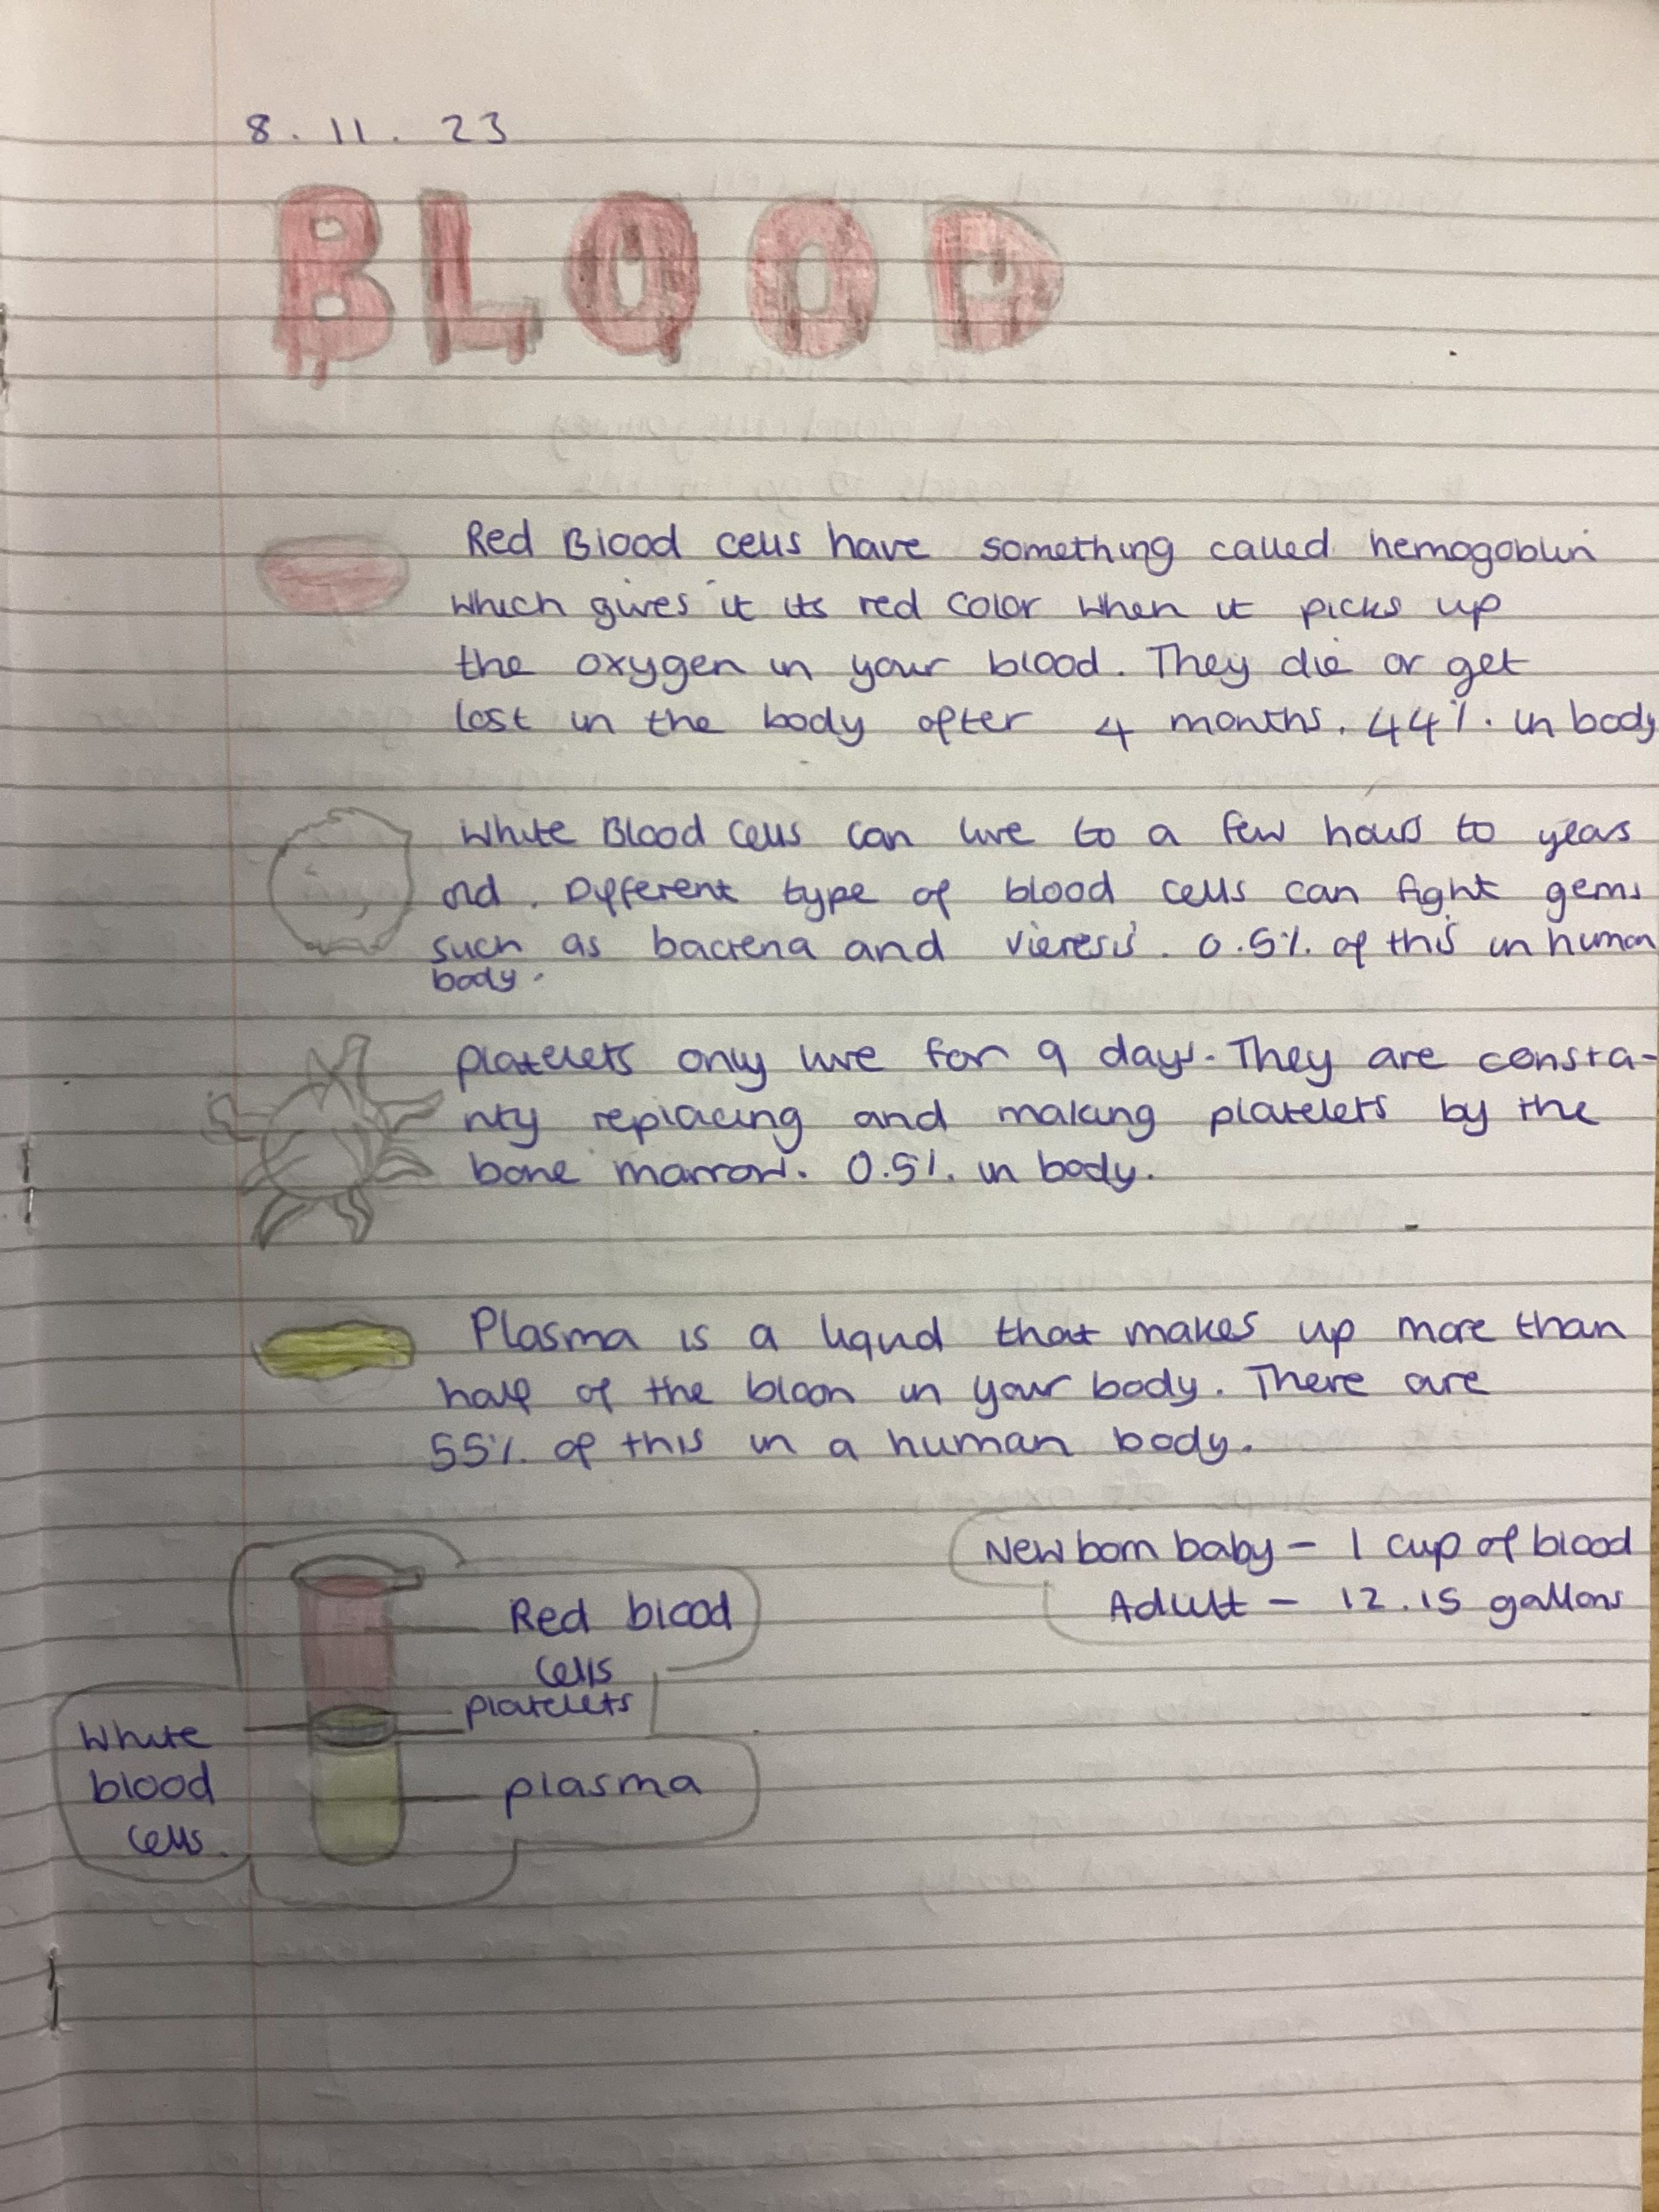 8.11.23
BLOOD
Red Blood cells have something called hemogoblin
which gives it its red color when it picks up
the oxygen in your blood. They die or get
lost in the body after 4 months. 44% in body
White Blood cells can live to a few hours to years
old. Different type of blood cells can fight gems
such as bacteria and vieresis. 0.5% of this in human
body.
platelets only live for 9 days. They are consta-
nty replacing and making platelets by the
bone marrow. 0.5% in body.
Plasma is a liqud that makes up more than
half of the bloon in your body. There are
55% of this in a human body.
New born baby - 1 cup of blood
Adult - 12.15 gallons
Red blood
cells
platelets
White
blood
cells.
plasma